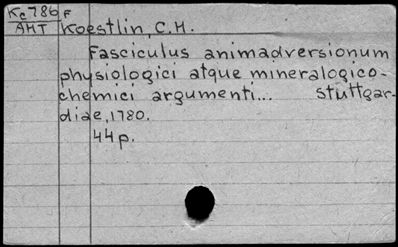 Kc786F
AHT Koestlin, C.H.
Fasciculus animadversionum
physiologici atque mineralogico-
chemici argumenti... Stuttgar-
diae, 1780.
44p.